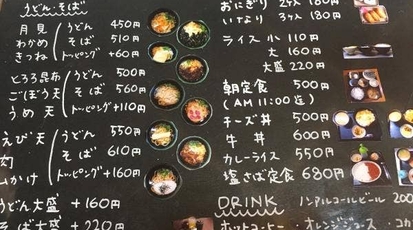 うどん・そば
月見 うどん 450円
わかめ そば 510円
きつね トッピング +60円
とろろ昆布 うどん 500円
ごぼう天 そば 560円
うめ天 トッピング +110円
えび天 うどん 550円
肉 そば 610円
トッピング +160円
うどん大盛 +160円
そば大盛 +220円
おにぎり 2ヶ入 180円
いなり 3ヶ入 180円
ライス 小 110円
大 160円
大盛 220円
朝定食 500円
(AM 11:00迄)
チーズ丼 500円
牛丼 600円
カレーライス 550円
塩さば定食 680円
DRINK
ノンアルコールビール 200
ホットコーヒー・オレンジジュース・コカ